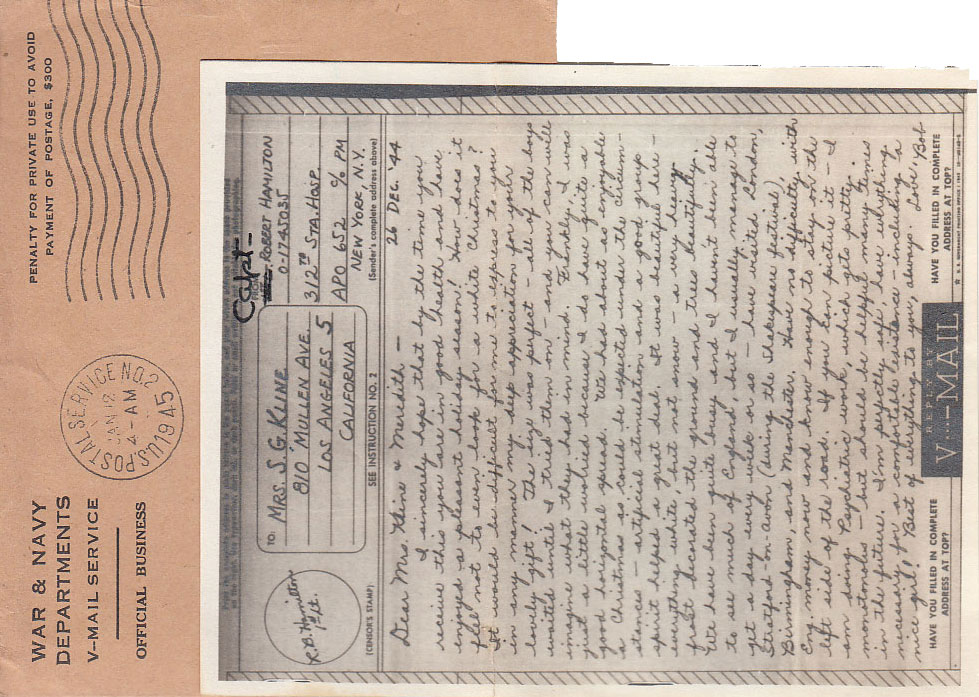 WAR & NAVY
DEPARTMENTS
V—MAIL SERVICE
OFFICIAL BUSINESS
U.S. POSTAL SERVICE NO. 2
JAN 12
4 - AM
1945
PENALTY FOR PRIVATE USE TO AVOID
PAYMENT OF POSTAGE, $300
R.B. Hamilton
1st Lt.
(CENSOR'S STAMP)
TO:
MRS. S. G. KLINE
810 MULLEN AVE.
LOS ANGELES 5
CALIFORNIA
SEE INSTRUCTION NO. 2
Capt.
FROM
ROBERT HAMILTON
O-1745035
312TH STA. HOSP.
APO 652 % PM
NEW YORK, N.Y.
(Sender's complete address above)
26 DEC. '44
Dear Mrs. Kline & Meridith —
I sincerely hope that by the time you
receive this you are in good health and have
enjoyed a pleasant holiday season! How does it
feel not to even look for a white Christmas?
It would be difficult for me to express to you
in any manner my deep appreciation for your
lovely gift! The size was perfect - all of the boys
waited until I tried them on - and you can well
imagine what they had in mind. Frankly, I was
just a little worried because I do have quite a
good horizontal spread. We had about as enjoyable
a Christmas as could be expected under the circum-
stances - artificial stimulation and a good group
spirit helped a great deal. It was beautiful here -
everything white, but not snow - a very heavy
frost decorated the ground and trees beautifully.
We have been quite busy and I haven't been able
to see much of England but I usually manage to
get a day every week or so - have visited London,
Stratford-on-Avon (during the Shakespeare festival)
Birmingham, and Manchester. Have no difficulty with
Eng. money now and know enough to stay on the
left side of the road. If you can picture it - I
am doing Psychiatric work which gets pretty
monotonous - but should be helpful many times
in the future. I'm perfectly safe, have everything
necessary for a comfortable existence - including a
nice girl! Best of everything to you, always. Love, Bob
HAVE YOU FILLED IN COMPLETE
ADDRESS AT TOP?
REPLY BY
V···—MAIL
HAVE YOU FILLED IN COMPLETE
ADDRESS AT TOP?